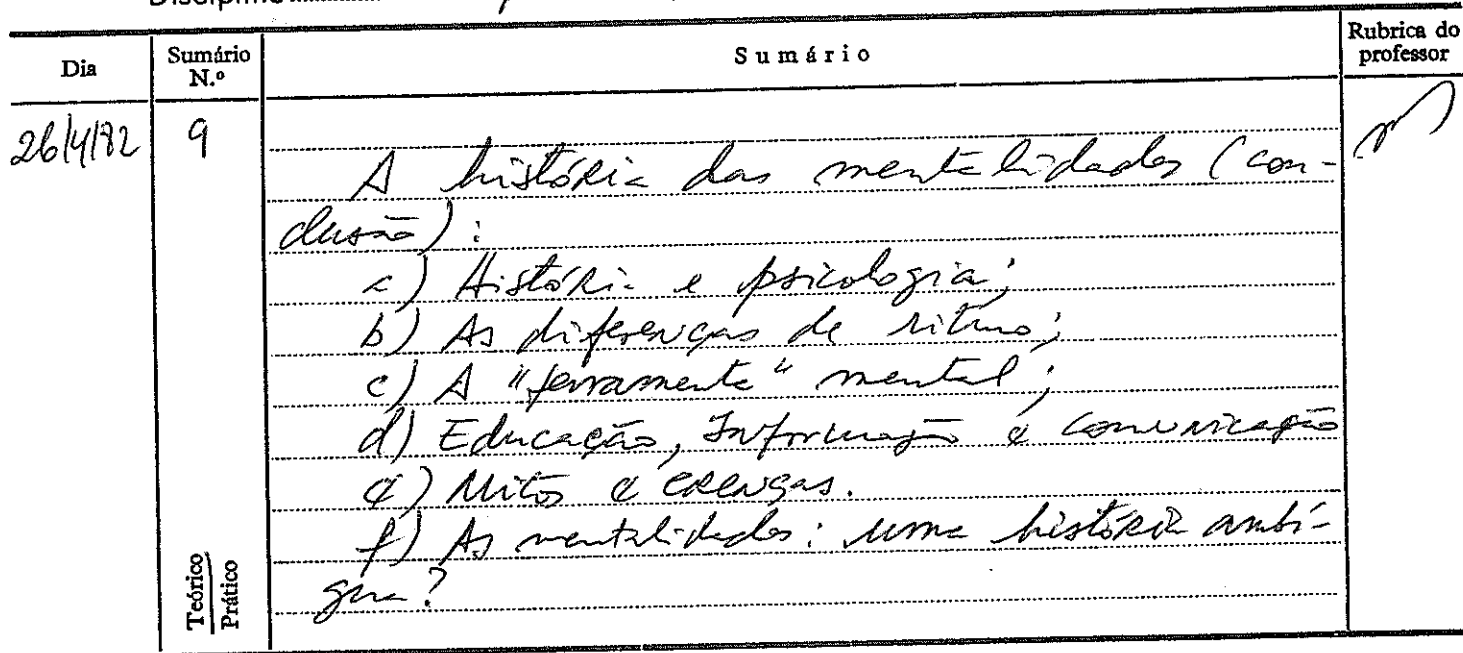 Disciplina
Dia
Sumário N.º
Sumário
Rubrica do professor
26/4/82
9
A história das mentalidades (con-
clusão):
a) História e psicologia;
b) As diferenças de ritmo;
c) A "ferramenta" mental;
d) Educação, Informação e comunicação
e) Mitos e crenças.
f) As mentalidades: uma história ambí-
gua?
Teórico
Prático